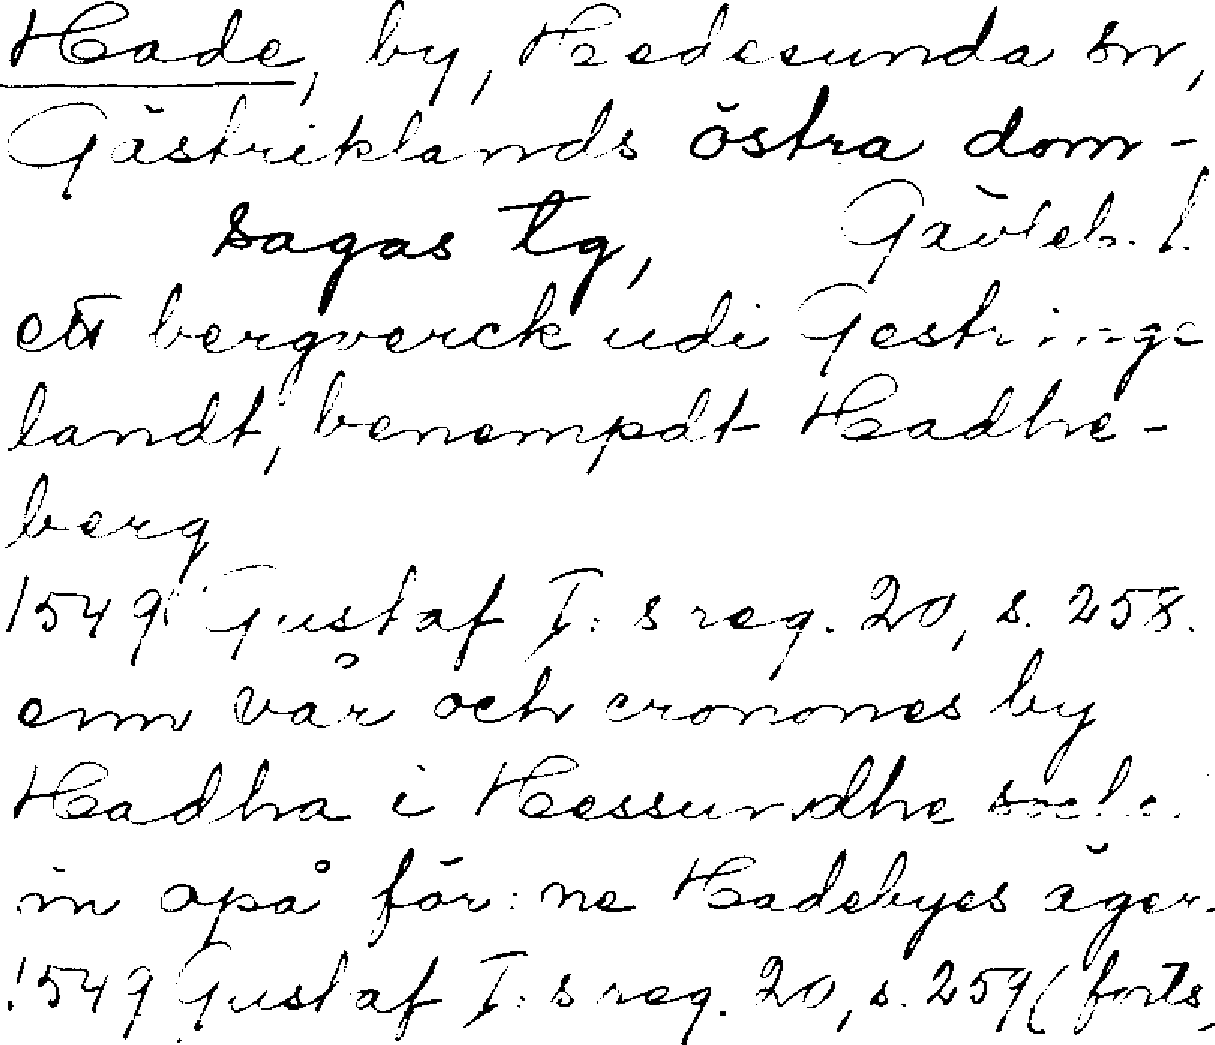 Hade, by, Hedesunda sn,
Gästriklands östra dom-
sagas tg, Gävleb. l.
ett bergverck udi Gestringe
landt, benempdt Hadhe-
berg
1549 Gustaf I:s reg. 20, s. 258.
enn vår och cronones by
Hadha i Hessundhe
in opå för:ne Hadebyes äger.
1549 Gustaf I:s reg. 20, s. 259 (forts,